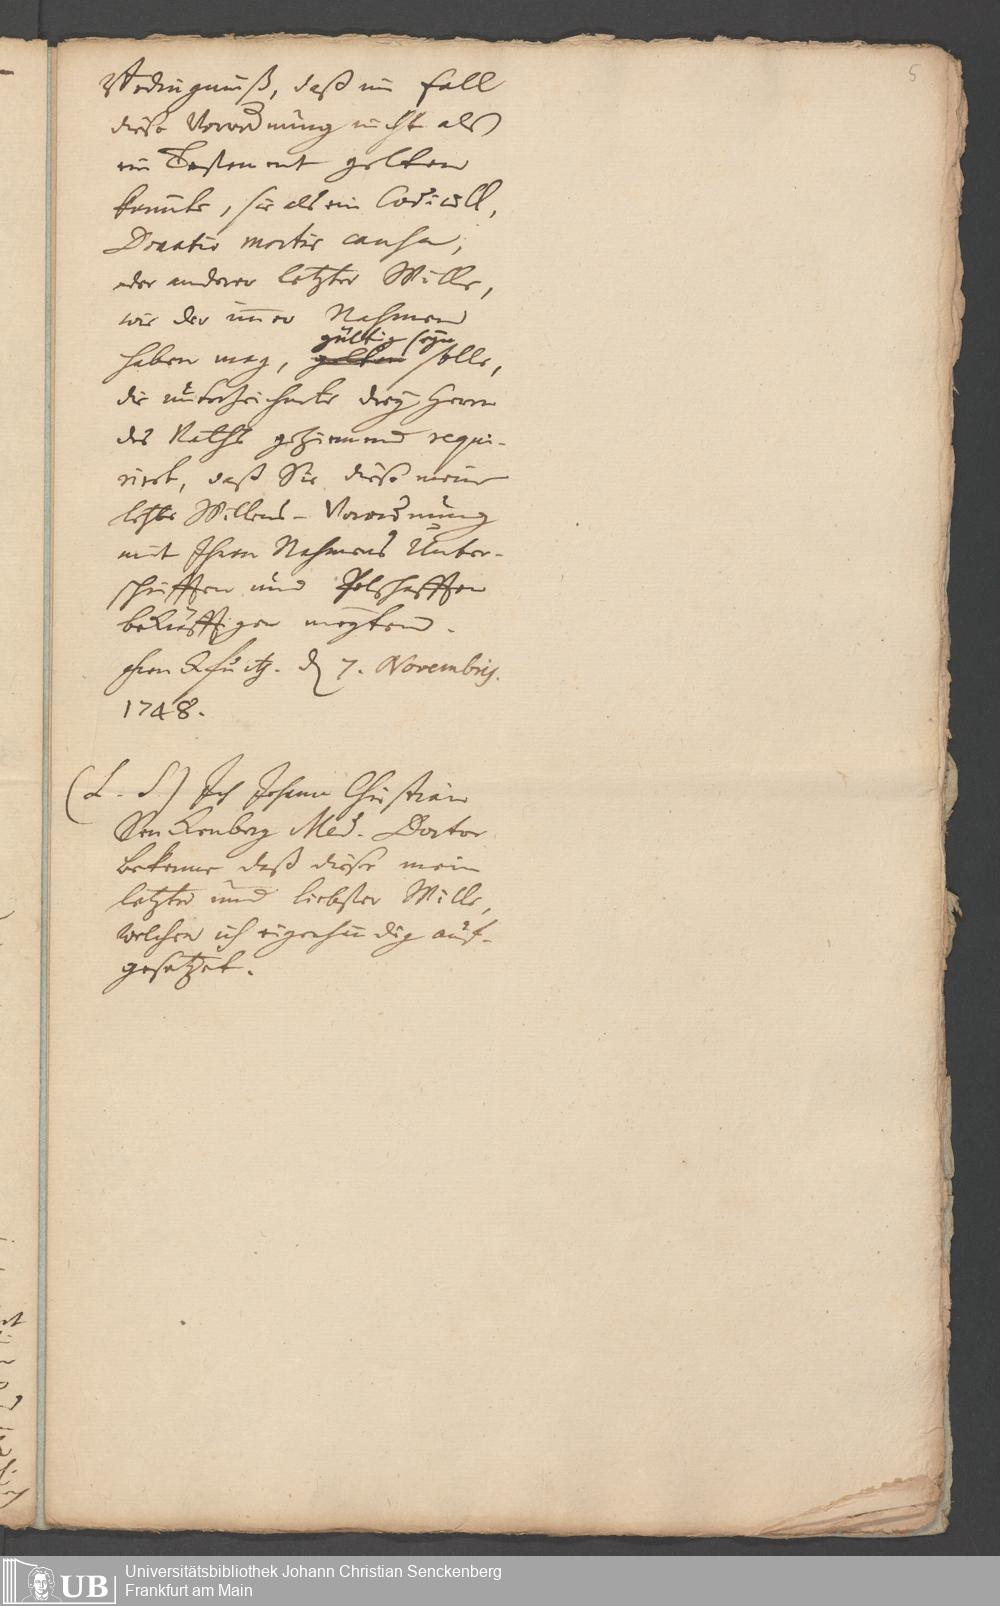 5
Bedingnuß, daß im fall
diese Verordnung nicht als
ein Testament gelten
konnte, sie als ein Codicill,
Donatio mortis causa,
oder anderer letzter Wille,
wie der immer Nahmen
gültig seyn
haben mag, gelten solle,
die unterzeichnete drey Herrn
des Raths geziemend requi-
rirt, daß Sie diese meine
letzte Willens-Verordnung
mit Ihren Nahmens Unter-
schrifften und Petschafften
bekräfftigen mögten.
d 7. Novembris.
1748.
(L. S.) Ich Johann Christian
Senckenberg Med. Doctor
bekenne daß diese mein
letzter und liebster Wille,
welchen ich eigenhändig auf-
gesetzet.
UB Universitätsbibliothek Johann Christian Senckenberg
Frankfurt am Main